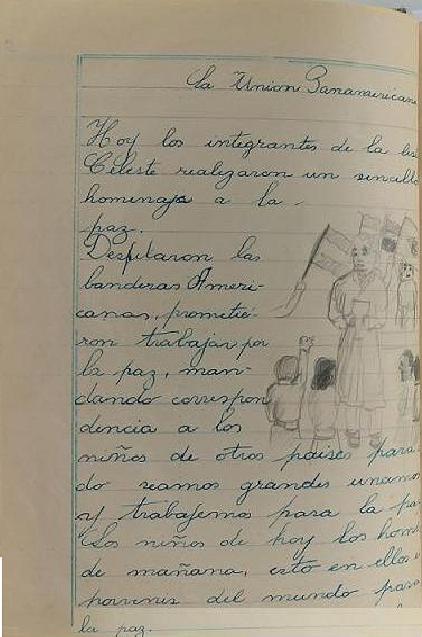 La Union Panamericana
Hoy los integrantes de la
Celeste realizaron un sencillo
homenaje a la
paz.
Desfilaron las
banderas Ameri-
canas, prometie-
ron trabajar por
la paz, man-
dando correspon
dencia a los
niños de otros paises para
do seamos grandes unamos
y trabajemos para la pa
"Los niños de hoy los hom
de mañana, esto en ellos
porvenir del mundo para
la paz.